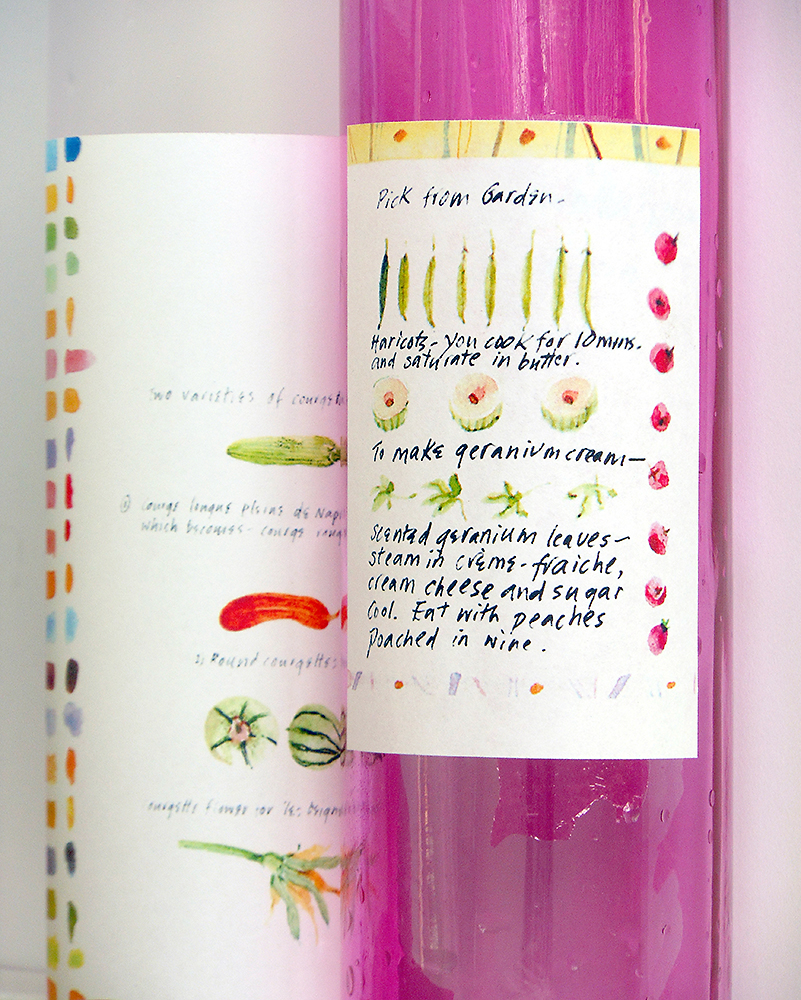 Pick from Garden.
Haricots - you cook for 10 mins.
and saturate in butter.
To make geranium cream—
Scented geranium leaves—
steam in crème-fraîche,
cream cheese and sugar
Cool. Eat with peaches
poached in wine.
Two varieties of
Courge longue pleine de
which becomes - courge
2) Round courgettes
flower for